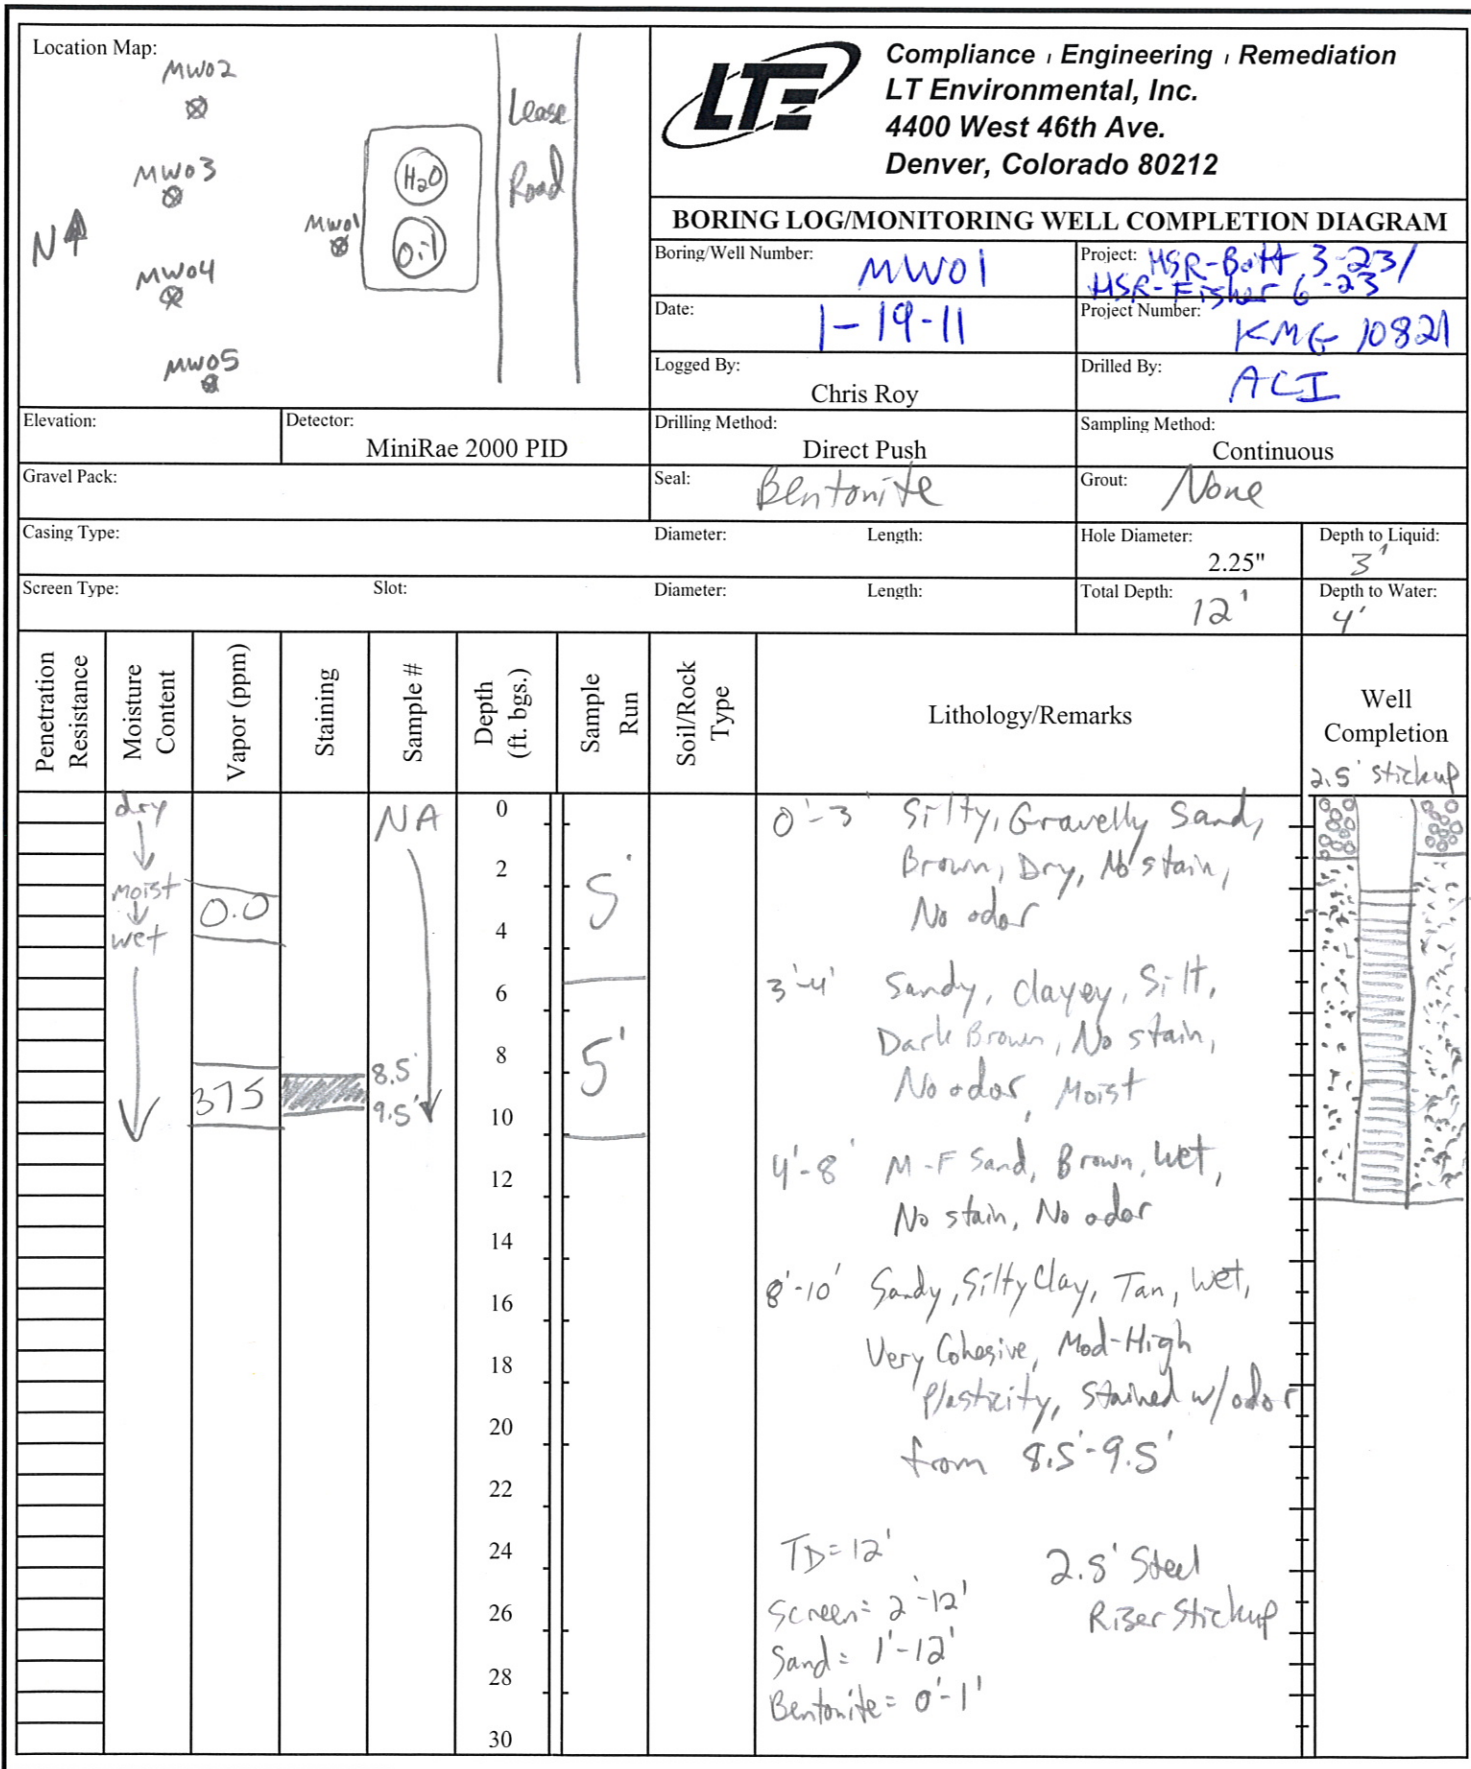 Location Map:
MW02
MW03
N
MW01
MW04
MW05
H2O
Oil
Lease
Road
LTE
Compliance | Engineering | Remediation
LT Environmental, Inc.
4400 West 46th Ave.
Denver, Colorado 80212
BORING LOG/MONITORING WELL COMPLETION DIAGRAM
Boring/Well Number: MW01
Project: HSR-Bott 3-23/
HSR-Fisher 6-23
Date: 1-19-11
Project Number: KMG 10821
Logged By: Chris Roy
Drilled By: ACI
Elevation:
Detector: MiniRae 2000 PID
Drilling Method: Direct Push
Sampling Method: Continuous
Gravel Pack:
Seal: Bentonite
Grout: None
Casing Type:
Diameter:
Length:
Hole Diameter: 2.25"
Depth to Liquid: 3'
Screen Type:
Slot:
Diameter:
Length:
Total Depth: 12'
Depth to Water: 4'
Penetration Resistance
Moisture Content
Vapor (ppm)
Staining
Sample #
Depth (ft. bgs.)
Sample Run
Soil/Rock Type
Lithology/Remarks
Well Completion
2.5' stickup
dry
moist
wet
0.0
375
NA
8.5'
9.5'
0
2
4
6
8
10
12
14
16
18
20
22
24
26
28
30
5'
5'
0'-3' Silty, Gravelly Sand,
Brown, Dry, No stain,
No odor
3'-4' Sandy, Clayey, Silt,
Dark Brown, No stain,
No odor, Moist
4'-8' M-F Sand, Brown, Wet,
No stain, No odor
8'-10' Sandy, Silty Clay, Tan, Wet,
Very Cohesive, Mod-High
Plasticity, Stained w/odor
from 8.5'-9.5'
TD=12'
Screen= 2'-12'
Sand= 1'-12'
Bentonite= 0'-1'
2.5' Steel
Riser Stickup